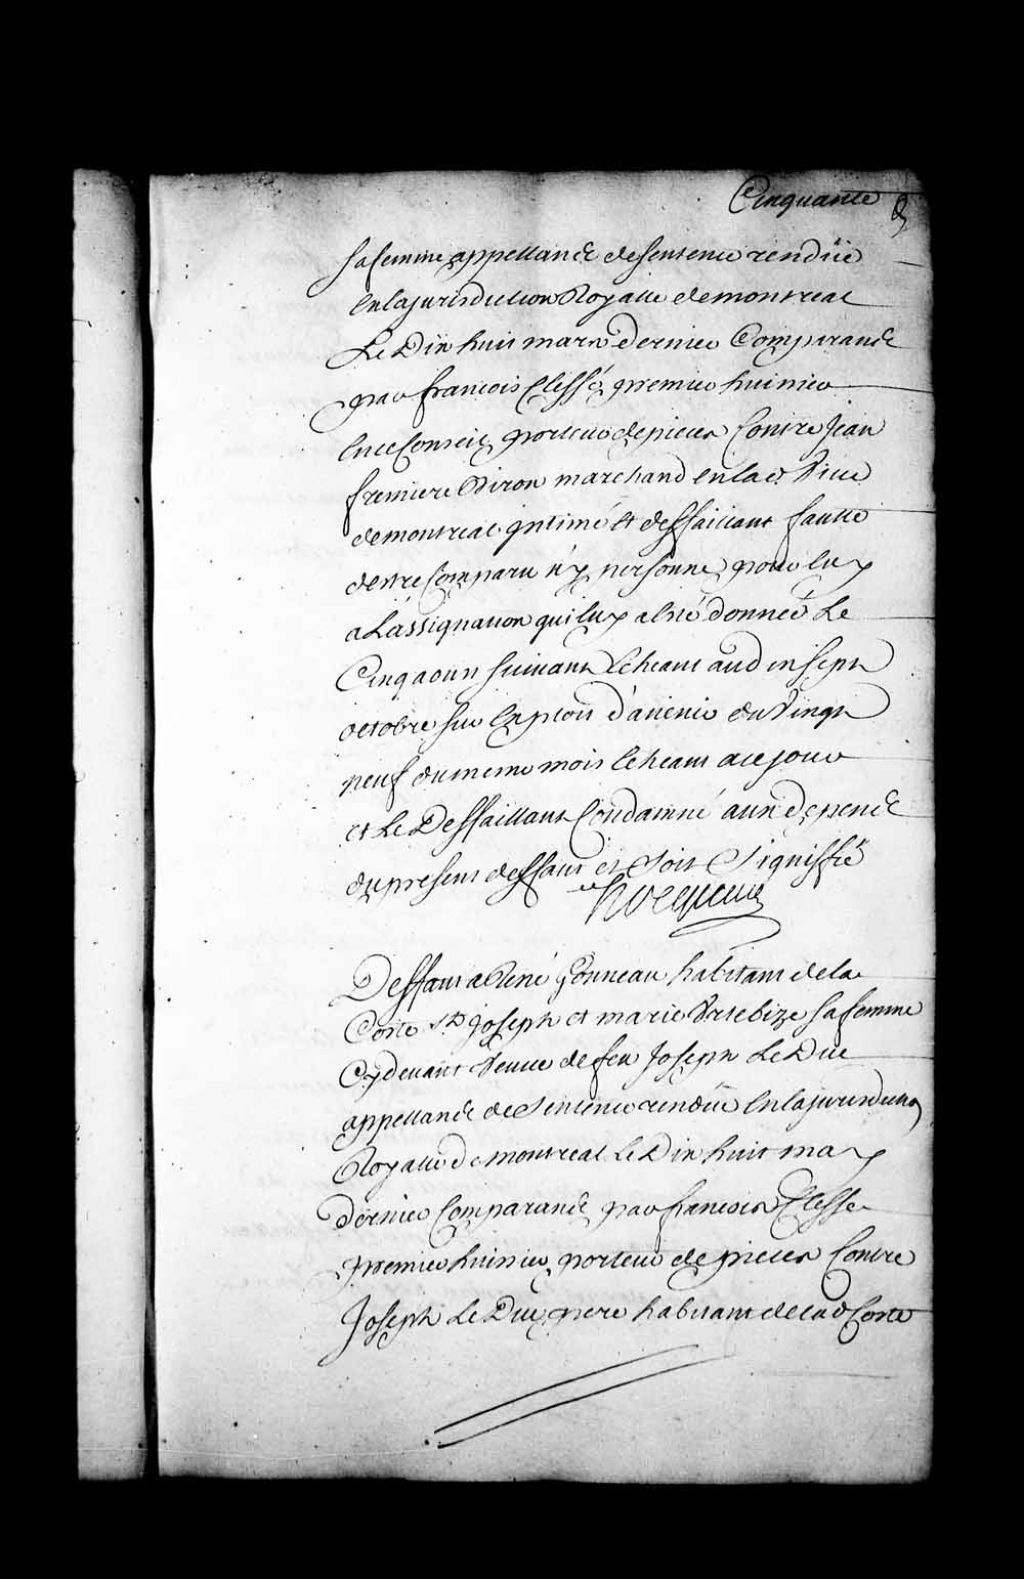 Cinquante
sa femme appellands de sentence rendüe
En la jurisdiction Royalle de montreal
Le Dix huit mars Dernier Comparands
par francois Clessé, premier huissier
En ce Conseil, porteur de pieces Contre Jean
fremiere marchand en lad. Ville
de montreal intimé Et deffaillant faulte
destre Comparu ny personne pour luy
a Lassignation qui luy a Esté donnée Le
Cinq aoust suivant Echeant aud
octobre sur Exploit d'avenir du Vingt
neuf du meme mois Echeant a ce jour
et Le Deffaillant Condamné aux depends
du present deffaut et soit Signiffié
hocquart
Deffaut a René Gonneau habitant de la
Coste St Joseph et marie Vrtebize sa femme
Cydevant Veuve de feu Joseph Le Duc
appellands de sentence rendüe En la jurisdiction
Royalle de montreal Le Dix huit may
Dernier Comparands par francois Clesse
premier huissier, porteur de pieces Contre
Joseph Le Duc pere habitant de lad. Coste